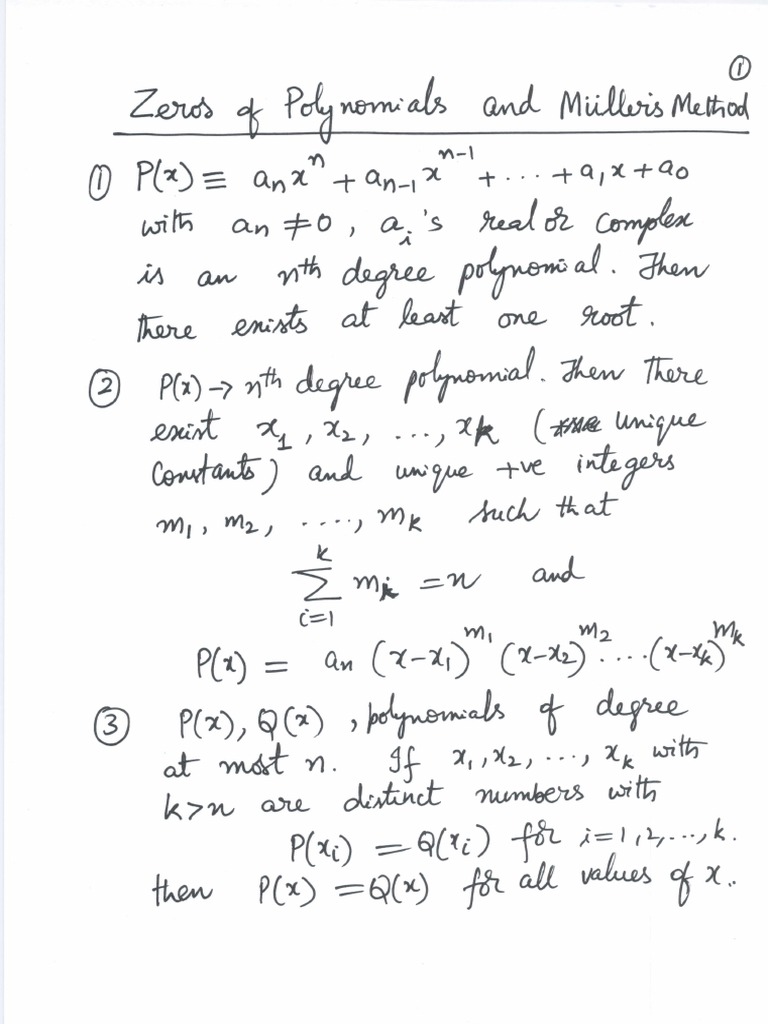 ①
Zeros of Polynomials and Müller's Method
① P(x) ≡ aₙxⁿ + aₙ₋₁xⁿ⁻¹ + ... + a₁x + a₀
with aₙ ≠ 0, aᵢ's real or complex
is an nth degree polynomial. Then
there exists at least one root.
② P(x) → nth degree polynomial. Then there
exist x₁, x₂, ..., xₖ ( unique
constants) and unique +ve integers
m₁, m₂, ...., mₖ such that
∑ᵢ₌₁ᵏ mᵢ = n and
P(x) = aₙ (x-x₁)^m₁ (x-x₂)^m₂ ....(x-xₖ)^mₖ
③ P(x), Q(x), polynomials of degree
at most n. If x₁, x₂, ..., xₖ with
k>n are distinct numbers with
P(xᵢ) = Q(xᵢ) for i=1,2,...,k.
then P(x) = Q(x) for all values of x..